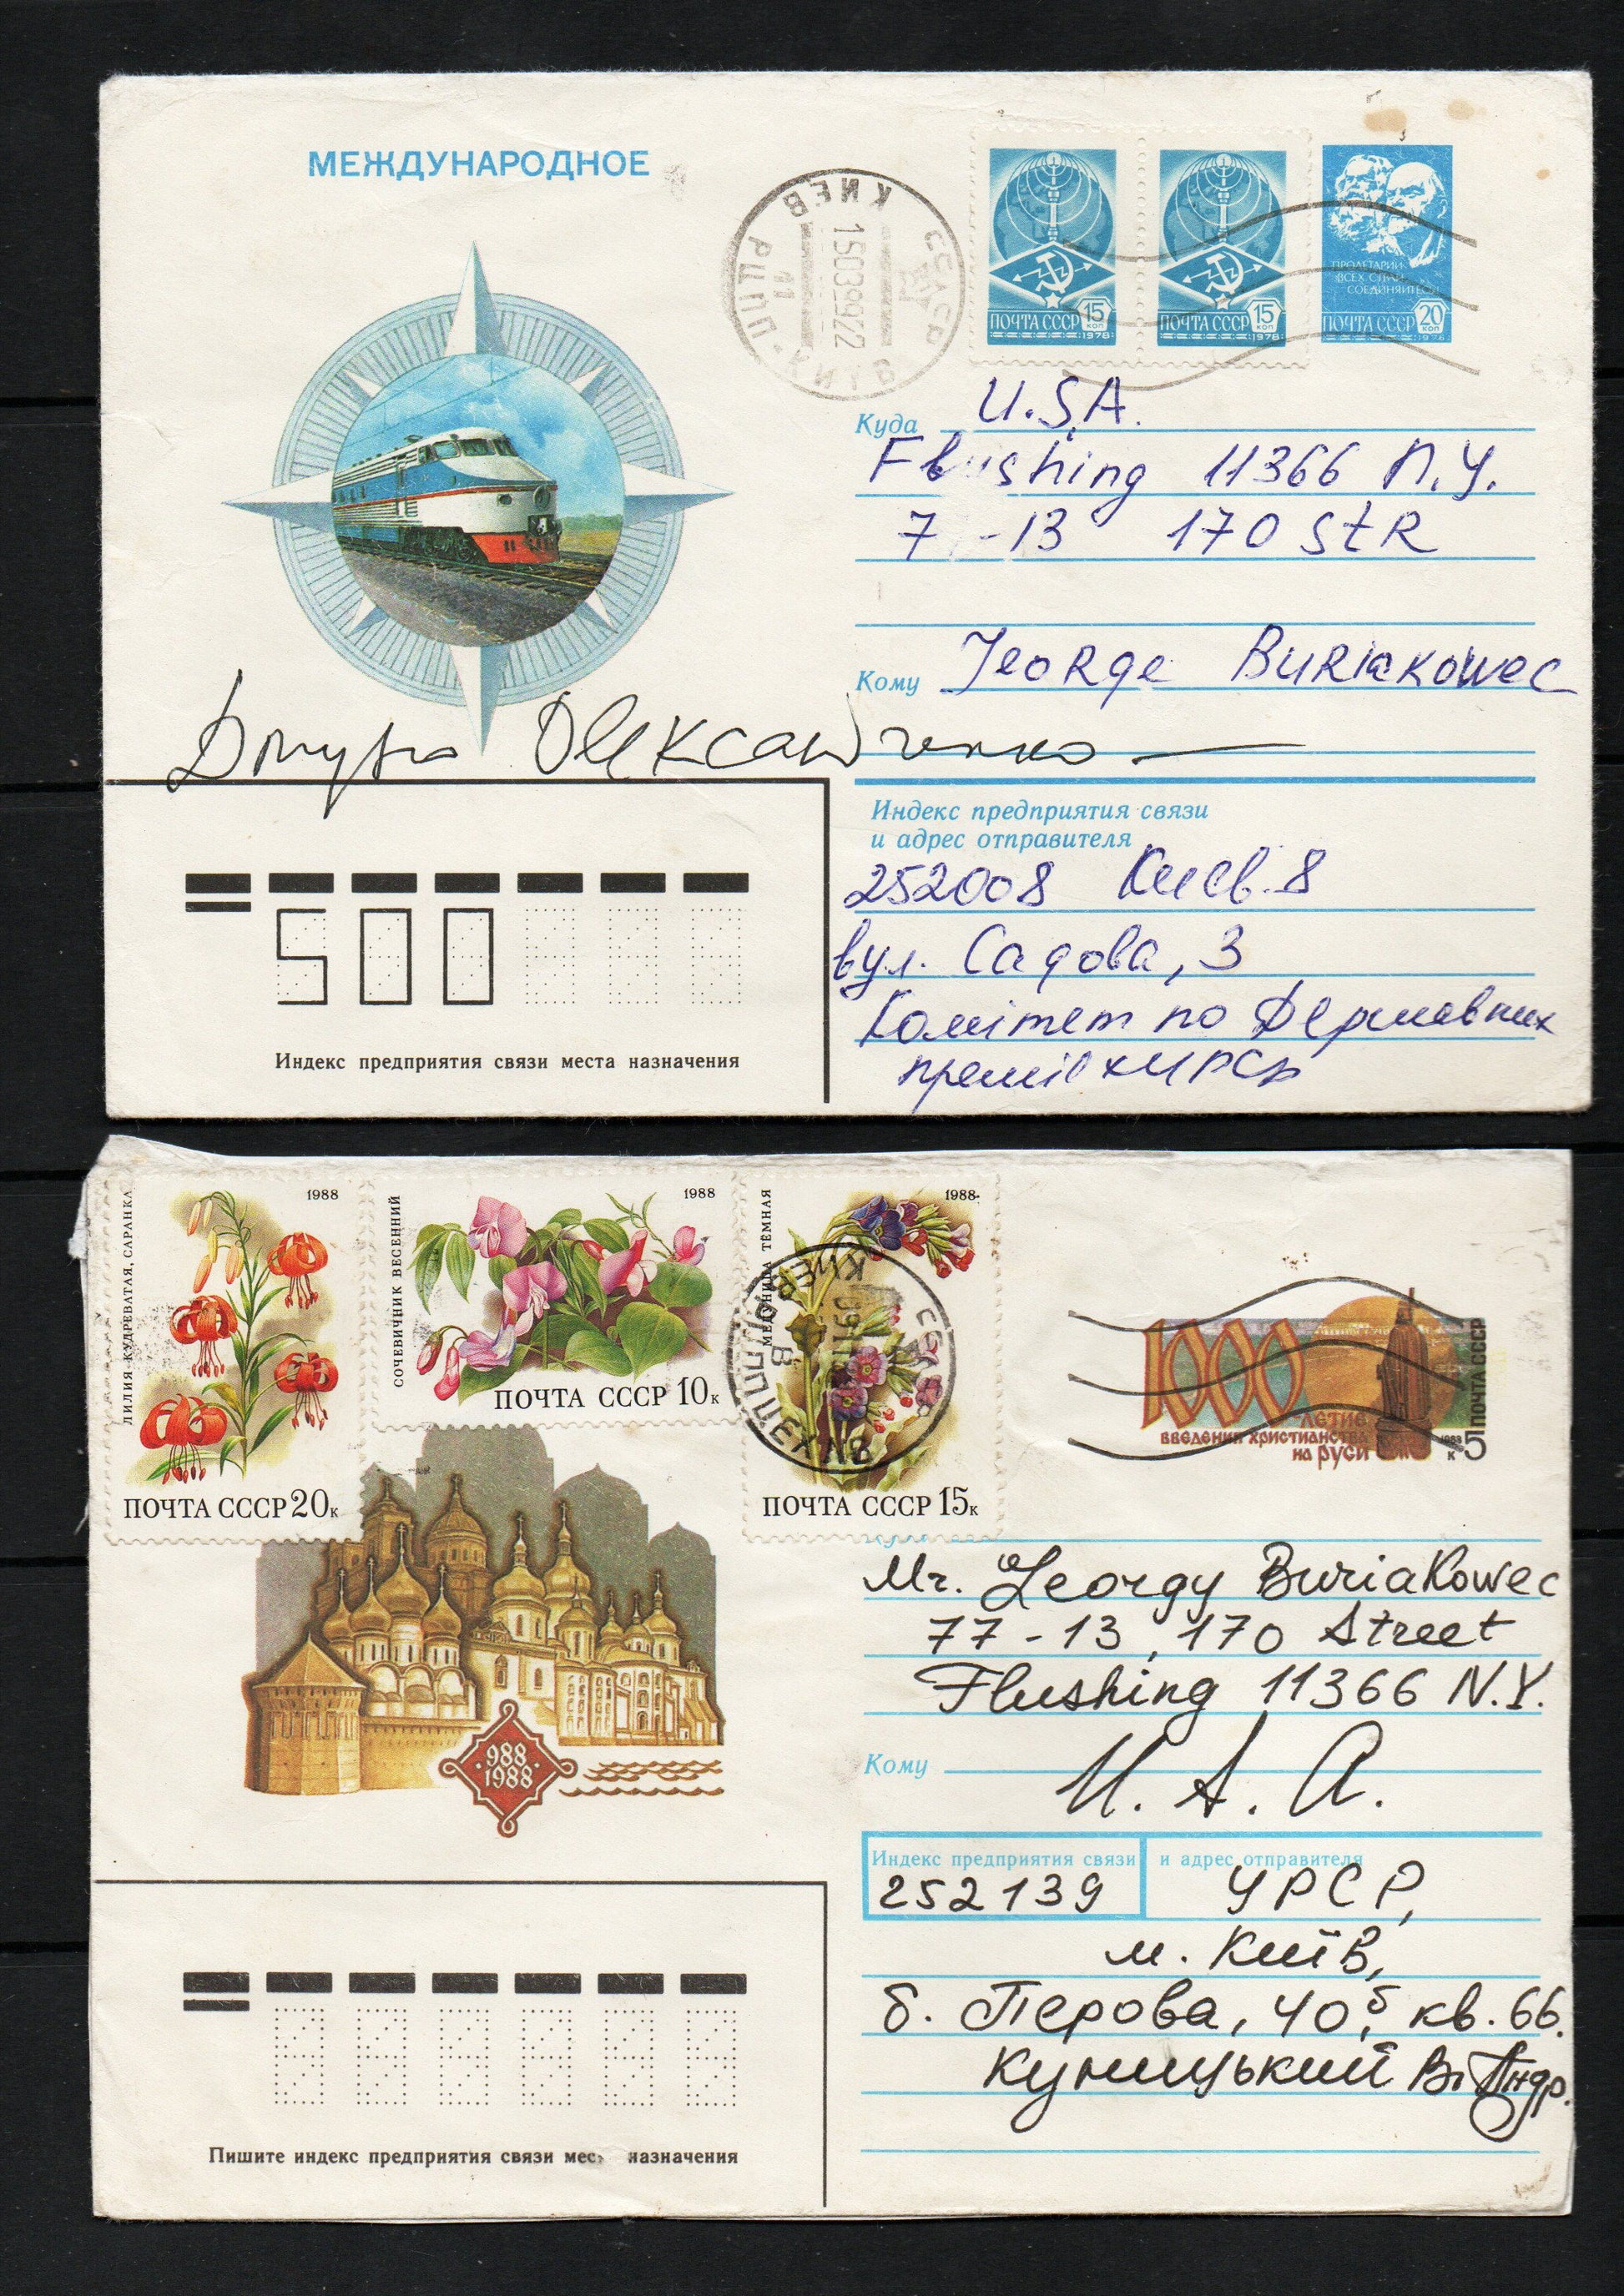 МЕЖДУНАРОДНОЕ
КИЕВ
РЦПП-
11
15 КОП
ПОЧТА СССР
1978
15 КОП
ПОЧТА СССР
1978
ПРОЛЕТАРИИ
ВСЕХ СТРАН
СОЕДИНЯЙТЕСЬ
ПОЧТА СССР
20 КОП
1976
Куда U.S.A.
Flushing 11366 N.Y.
7 -13 170 StR
Кому George Buriakowec
Dmytro Oleksandr
Индекс предприятия связи
и адрес отправителя
252008 Киев 8
вул. Садова, 3
Комітет по Державних
премiях УРСР
500
Индекс предприятия связи места назначения
ЛИЛИЯ КУДРЕВАТАЯ, САРАНКА
1988
ПОЧТА СССР 20к
СОЧЕВИЧНИК ВЕСЕННИЙ
1988
ПОЧТА СССР 10к
МЕДУНИЦА ТЁМНАЯ
1988
ПОЧТА СССР 15к
КИЕВ
СССР
1000
-ЛЕТИЕ
ВВЕДЕНИЯ ХРИСТИАНСТВА
НА РУСИ
1988
5к
ПОЧТА СССР
988
1988
Mr. Georgy Buriakowec
77-13, 170 Street
Flushing 11366 N.Y.
Кому
Индекс предприятия связи и адрес отправителя
252139 УРСР,
м. Київ,
б. Перова, 40б, кв. 66.
Куницький В. Андр.
Пишите индекс предприятия связи мес назначения